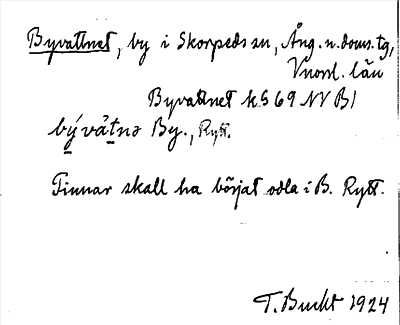 Byvattnet, by i Skorpeds sn, Ång. n. doms. tg,
Vnorrl. län
Byvattnet k569 NV Bl
bývàt̲nə By., Rytt.
Finnar skall ha börjat odla i B. Rytt.
T. Bucht 1924